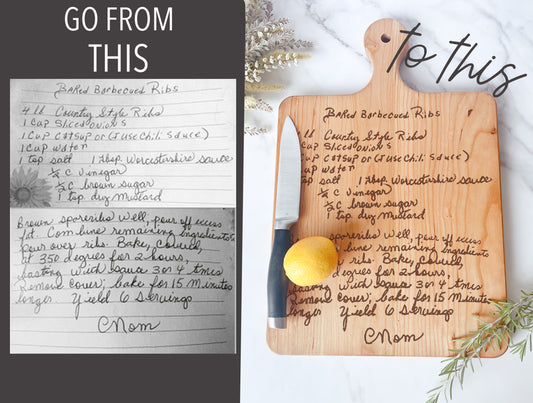 GO FROM
THIS
BAKed BarbecueD Ribs
4 lb Country Style Ribs
1 Cup Sliced Onions
1 Cup Catsup or (I use Chili Sauce)
1 Cup water
1 tsp salt 1 tbsp. Worcestershire sauce
1/2 C Vinegar
1/2 C brown sugar
1 tsp dry Mustard
Brown spareribs well, pour off excess
fat. Combine remaining ingredients
Pour over ribs. Bake, Covered,
at 350 degrees for 2 hours,
basting with sauce 3 or 4 times
Remove cover; bake for 15 Minutes
longer. Yield 6 servings
Mom
to this
BAKed BarbecueD Ribs
lb Country Style Ribs
Cup Sliced Onions
Cup Catsup or (I use Chili Sauce)
Cup water
tsp salt 1 tbsp. Worcestershire sauce
C Vinegar
1/2 C brown sugar
1 tsp dry Mustard
spareribs well, pour off excess
Combine remaining ingredients
ribs. Bake, Covered,
degrees for 2 hours,
basting with sauce 3 or 4 times
Remove cover; bake for 15 Minutes
longer. Yield 6 servings
Mom